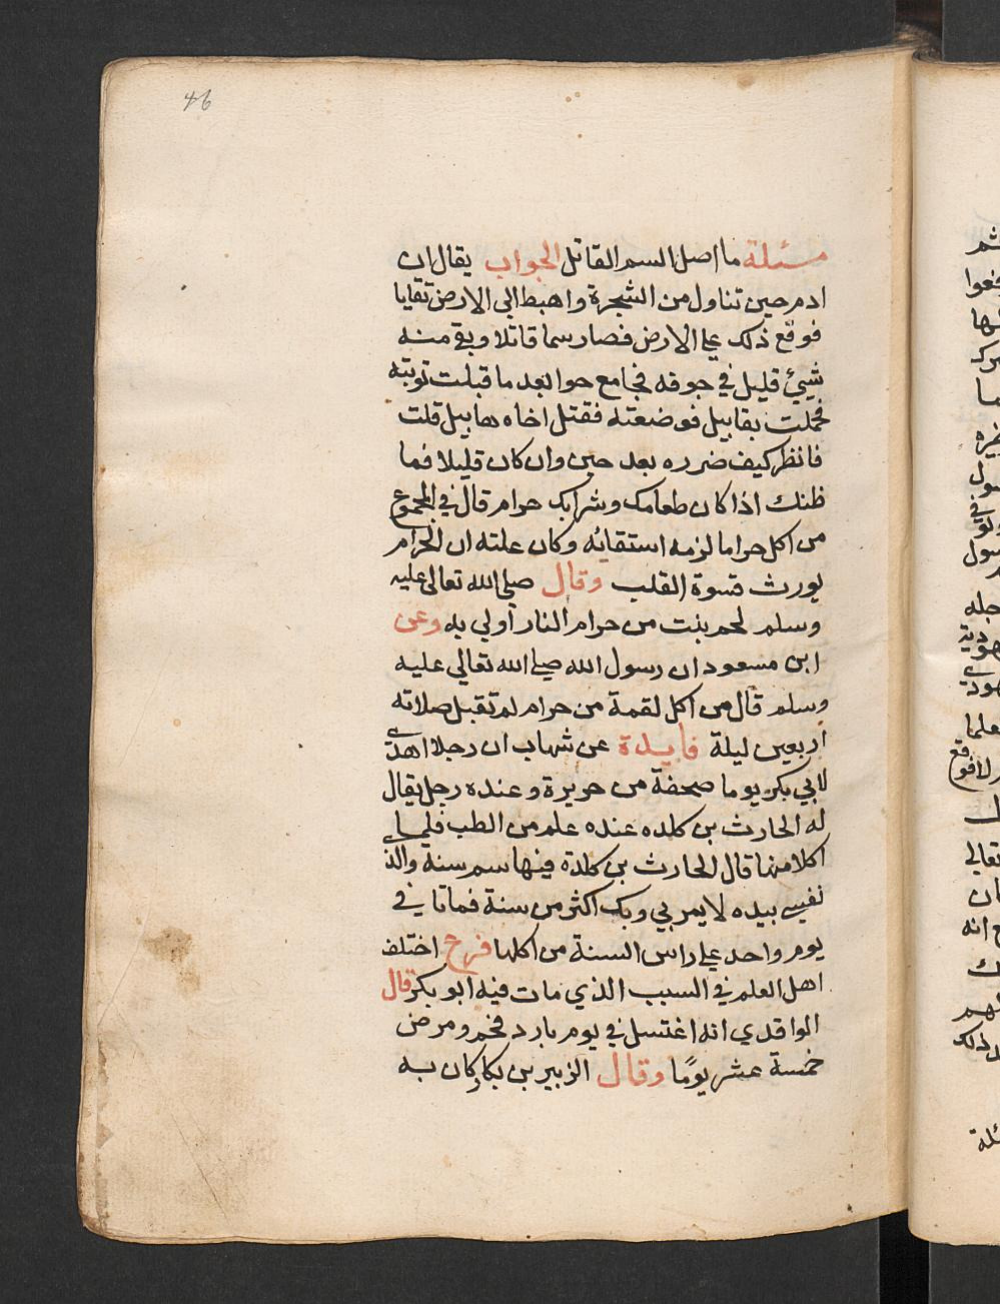 46
مسئلة ما اصل السم القاتل الجواب يقال ان
ادم حين تناول من الشجرة واهبط الى الارض تقايا
فوقع ذلك على الارض فصار سما قاتلا وبقي منه
شيئ قليل في جوفه فجامع حوا بعد ما قبلت توبته
فحملت بقابيل فوضعته فقتل اخاه هابيل قلت
فانظر كيف ضرره بعد حين وان كان قليلا فما
ظنك اذا كان طعامك وشرابك حرام قال في المجموع
من اكل حراما لزمه استقائه وكان علته ان الحرام
يورث قسوة القلب وقال صلى الله تعالى عليه
وسلم لحم بنت من حرام النار اولى به وعن
ابن مسعود ان رسول الله صلى الله تعالى عليه
وسلم قال من اكل لقمة من حرام لم تقبل صلاته
اربعين ليلة فايدة عن شهاب ان رجلا اهدى
لابي بكر يوما صحفة من حريرة وعنده رجل يقال
له الحارث بن كلده عنده علم من الطب فلما
اكلا منها قال الحارث بن كلدة فيها سم سنة والذ
نفسي بيده لا يمر بي وبك اكثر من سنة فماتا في
يوم واحد على راس السنة من اكلها فرع اختلف
اهل العلم في السبب الذي مات فيه ابو بكر قال
الواقدي انه اغتسل في يوم بارد فحم ومرض
خمسة عشر يومًا وقال الزبير بن بكار كان به